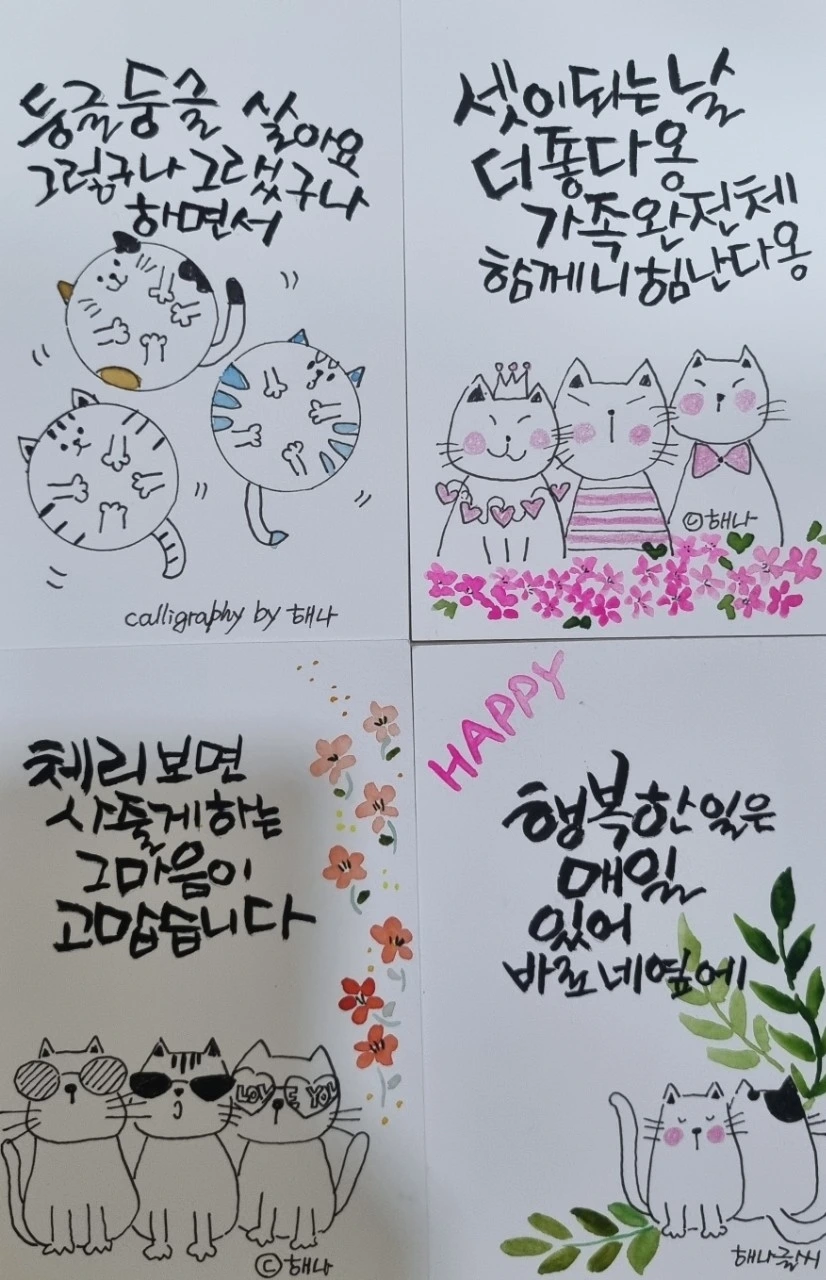 둥글둥글 살아요
그렇구나 그랬구나
하면서
calligraphy by 해나
셋이되는 날
더 좋다옹
가족완전체
함께니 힘난다옹
ⓒ해나
체리보면
사줄게하는
그마음이
고맙습니다
LOVE YOU
ⓒ해나
HAPPY
행복한 일은
매일
있어
바로 네 옆에
해나글씨